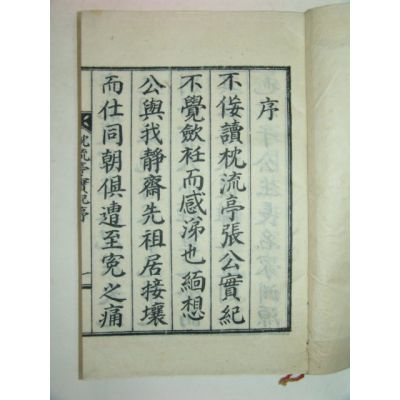 序
不佞讀枕流亭張公實紀
不覺歛衽而感涕也緬想
公與我靜齋先祖居接壤
而仕同朝俱遭至寃之痛
枕流亭實紀序